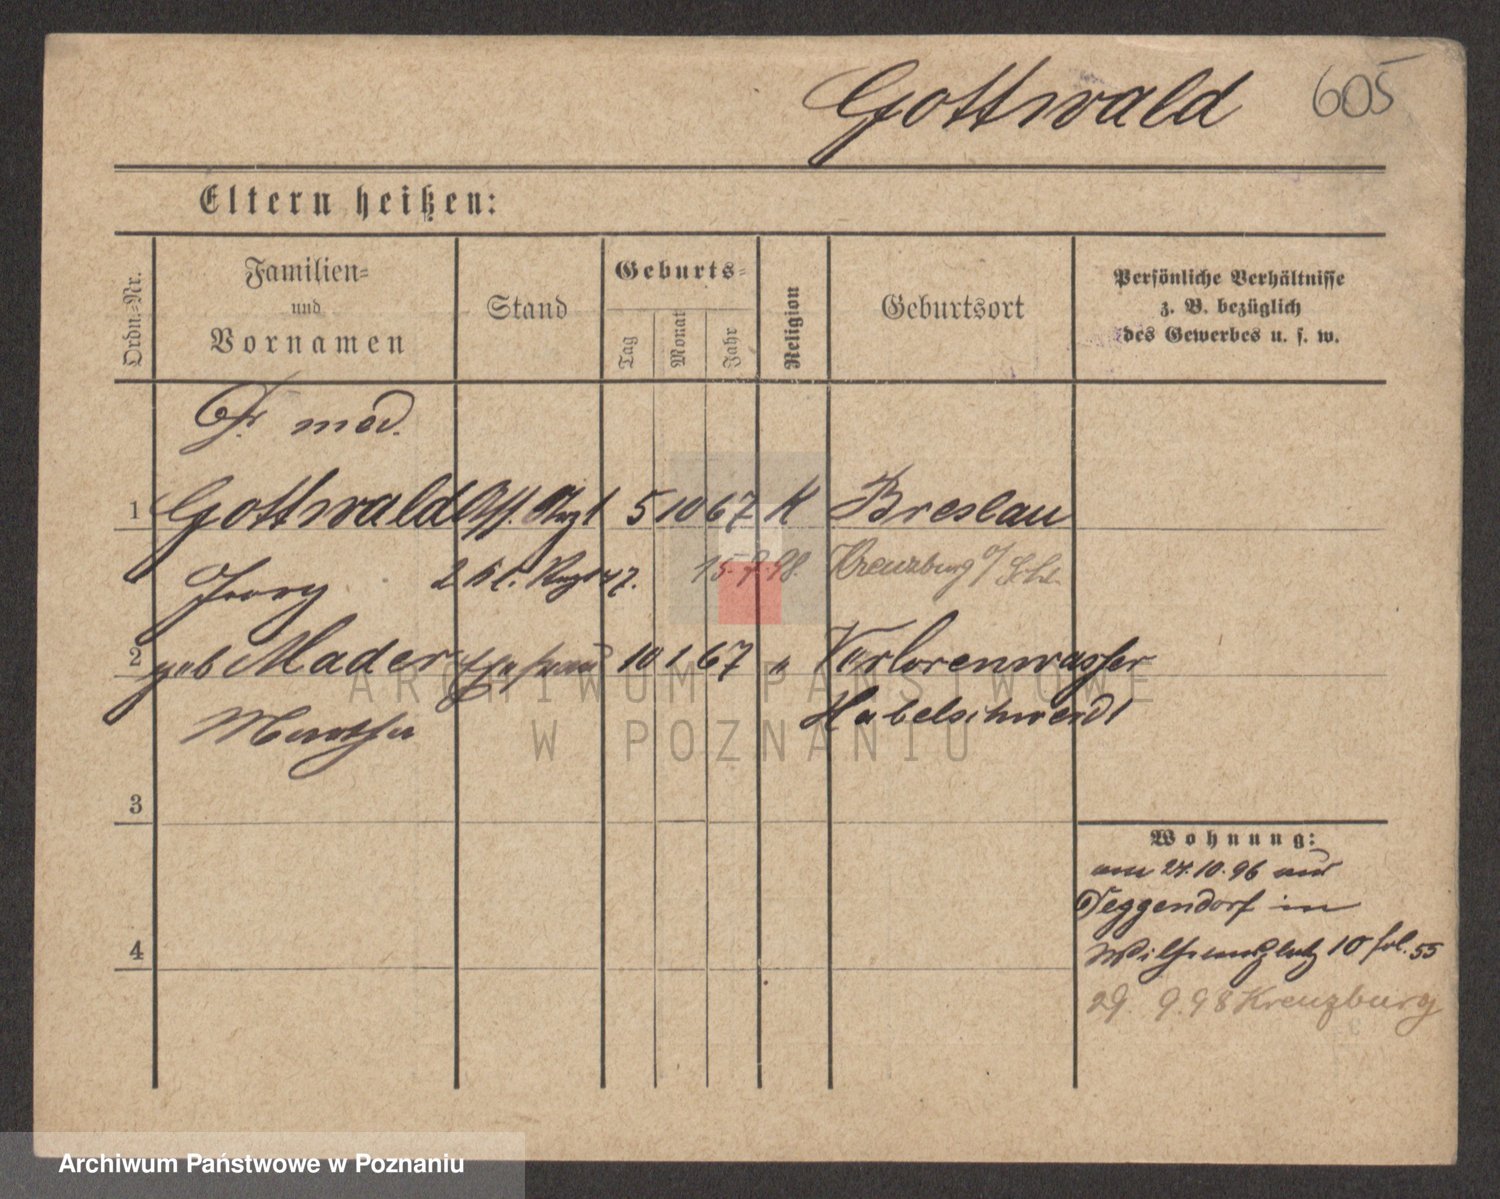 Gottwald 605
Eltern heißen:
Ordn.=Nr.
Familien=
und
Vornamen
Stand
Geburts=
Tag
Monat
Jahr
Religion
Geburtsort
Persönliche Verhältnisse
z. B. bezüglich
des Gewerbes u. s. w.
Dr med.
1 Gottwald Ass. Arzt 5 10 67 K Breslau
Georg 2 Kl. 47. 15.7.98. Kreuzburg o/ Schl.
2 geb Mader Ehefrau 10 1 67 " Verlorenwasser
Martha Habelschwerdt
3
Wohnung:
am 24.10.96 aus
Deggendorf in
4 Wilhelmsplatz 10 fol. 55
29. 9.98 Kreuzburg
ARCHIWUM PAŃSTWOWE
W POZNANIU
Archiwum Państwowe w Poznaniu